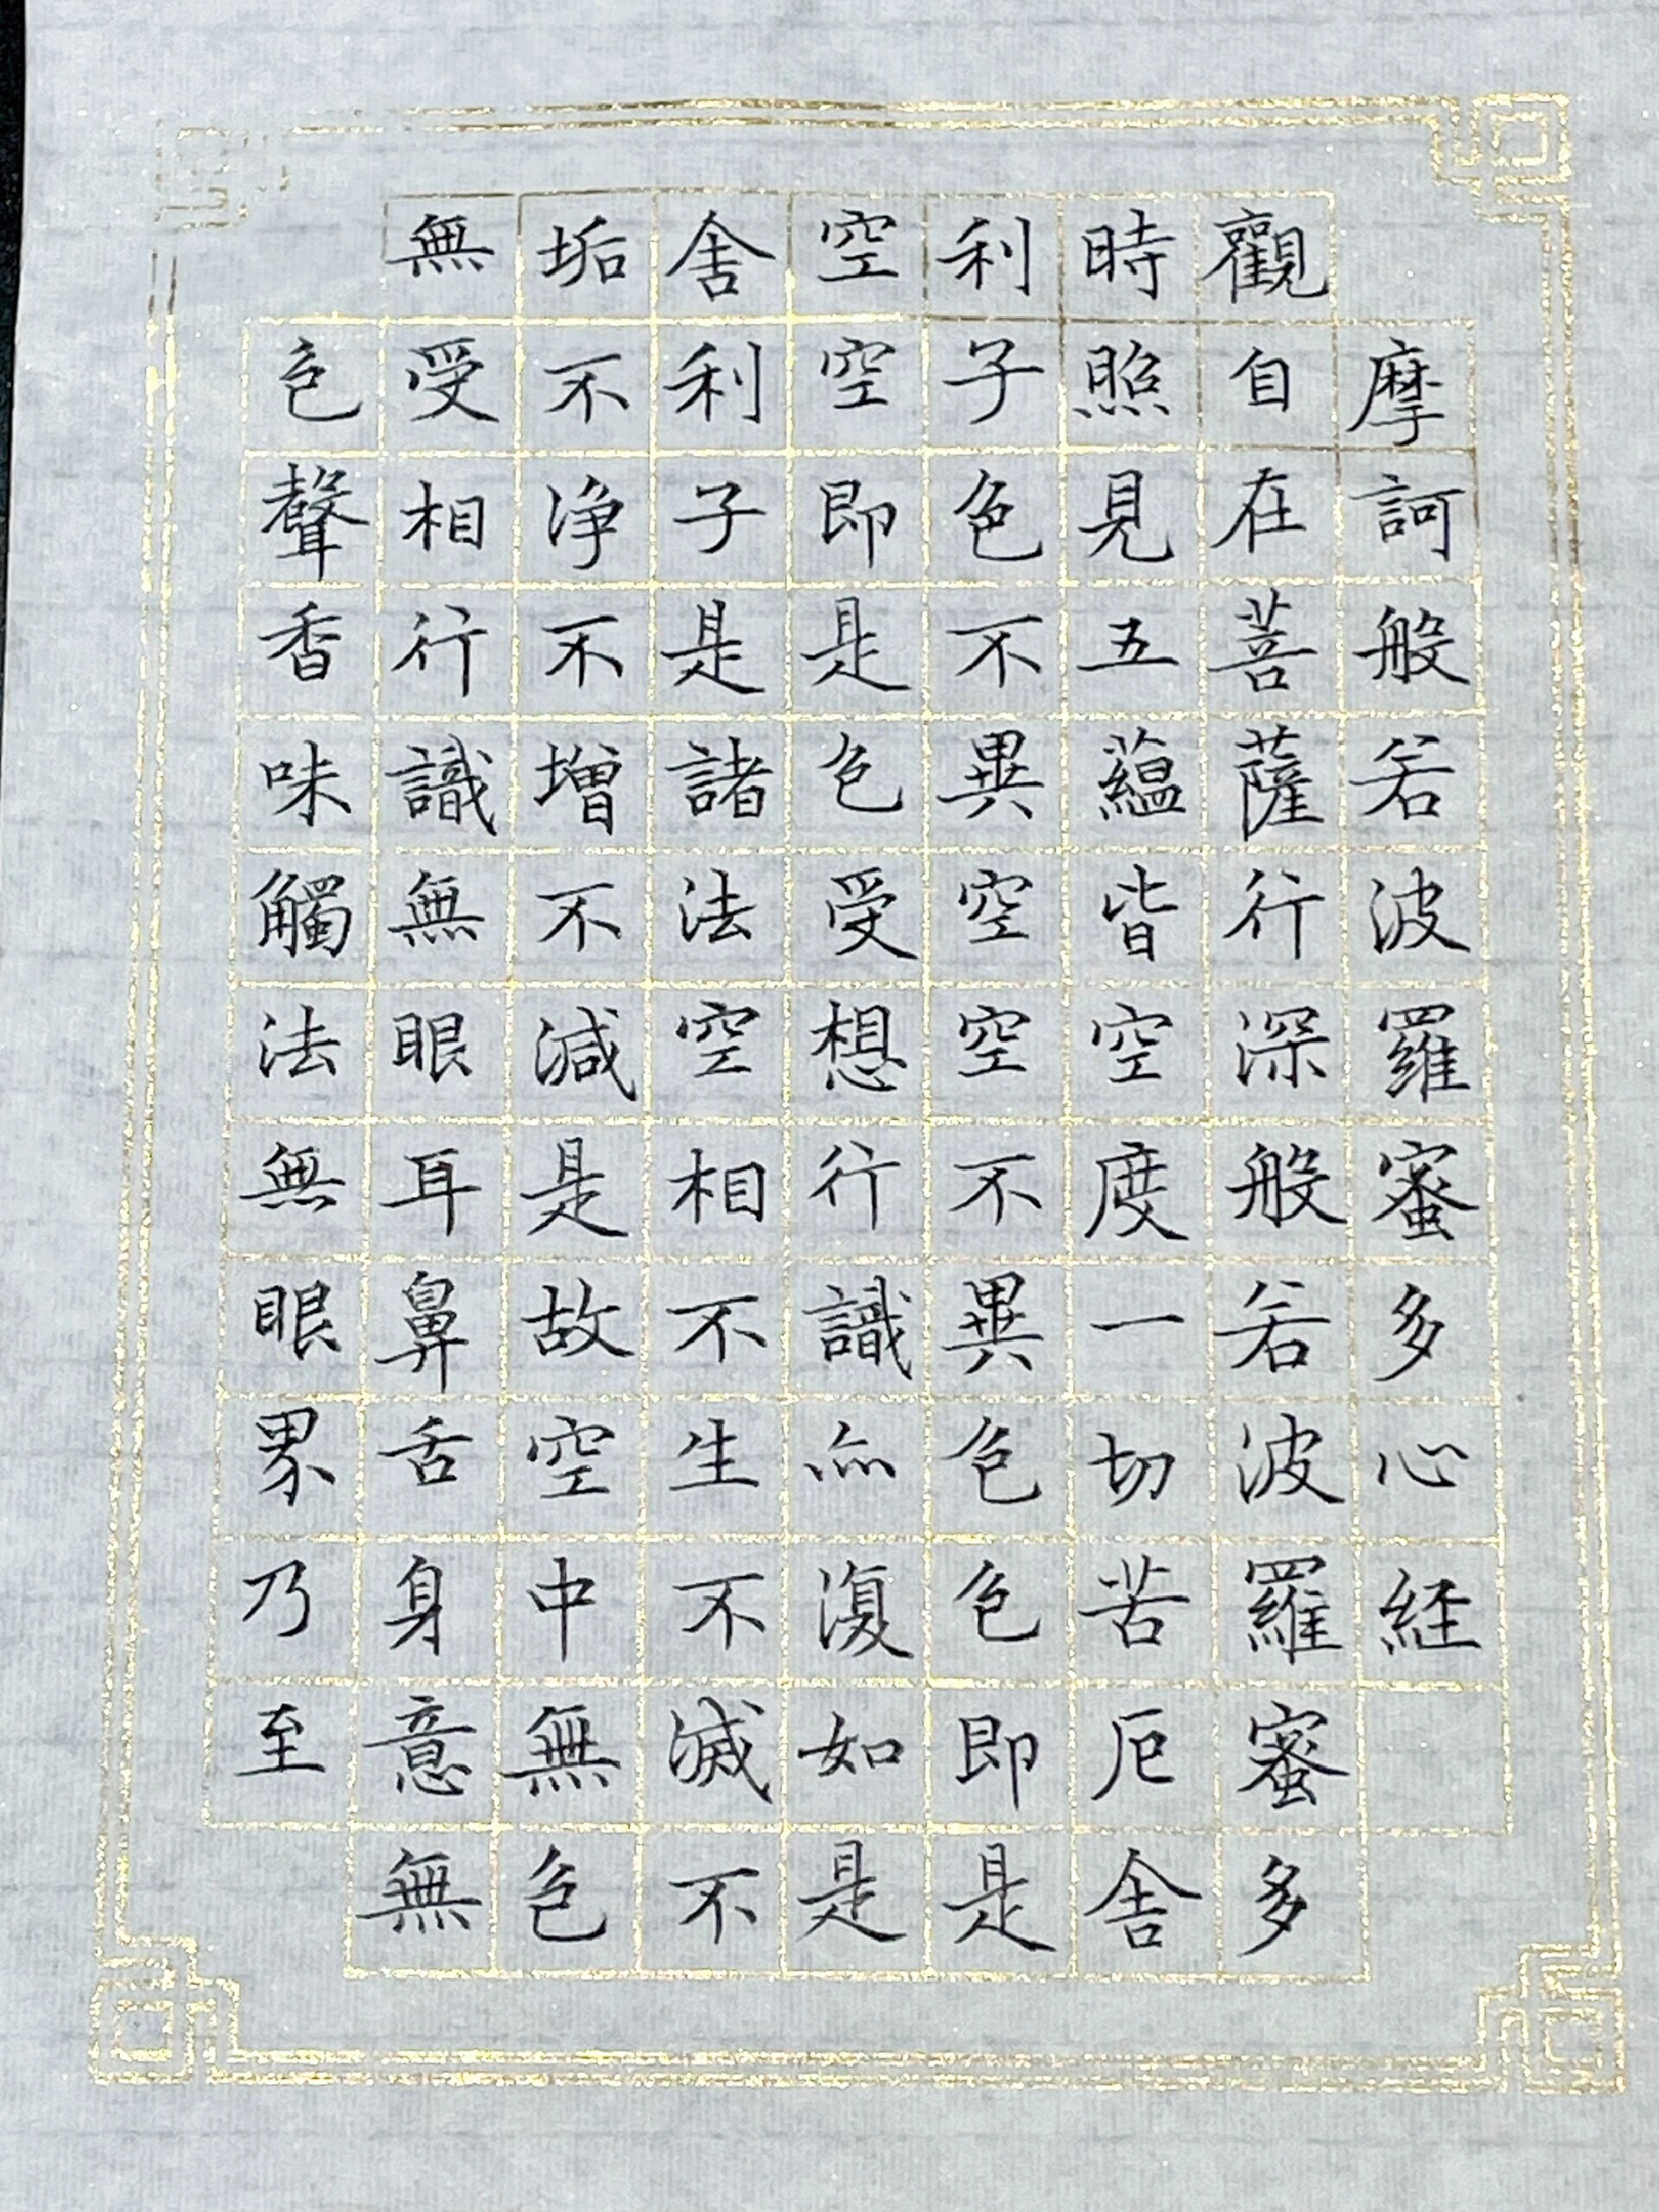 摩訶般若波羅蜜多心経
觀自在菩薩行深般若波羅蜜多
時照見五蘊皆空度一切苦厄舍
利子色不異空空不異色色即是
空空即是色受想行識亦復如是
舍利子是諸法空相不生不滅不
垢不净不增不減是故空中無色
無受相行識無眼耳鼻舌身意無
色聲香味觸法無眼界乃至